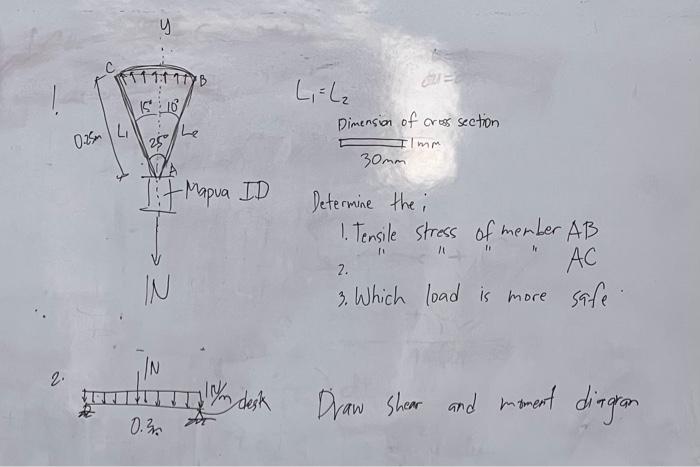 y
1.
C
B
15° 10°
L₁ 25° L₂
0.25m
A
Mapua ID
1N
L₁=L₂
Dimension of cross section
1mm
30mm
Determine the ;
1. Tensile stress of member AB
2. " " " " AC
3. Which load is more safe
2.
1N
1N/m
desk
Draw shear and moment diagram